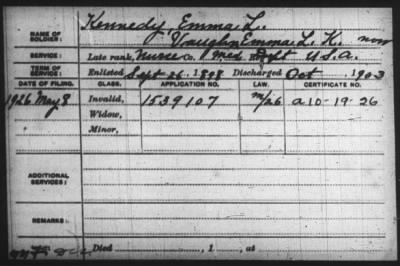 Kennedy, Emma L.
NAME OF SOLDIER: Vaughn Emma L. K. now
SERVICE: Late rank, Nurse Co. Med Dept U.S.A.
TERM OF SERVICE: Enlisted Sept 26, 1898 Discharged Oct , 1903
DATE OF FILING. CLASS. APPLICATION NO. LAW. CERTIFICATE NO.
1926 May 8 Invalid, 1539107 a 10-19-26
Widow,
Minor,
ADDITIONAL SERVICES:
REMARKS:
Died , 1 , at